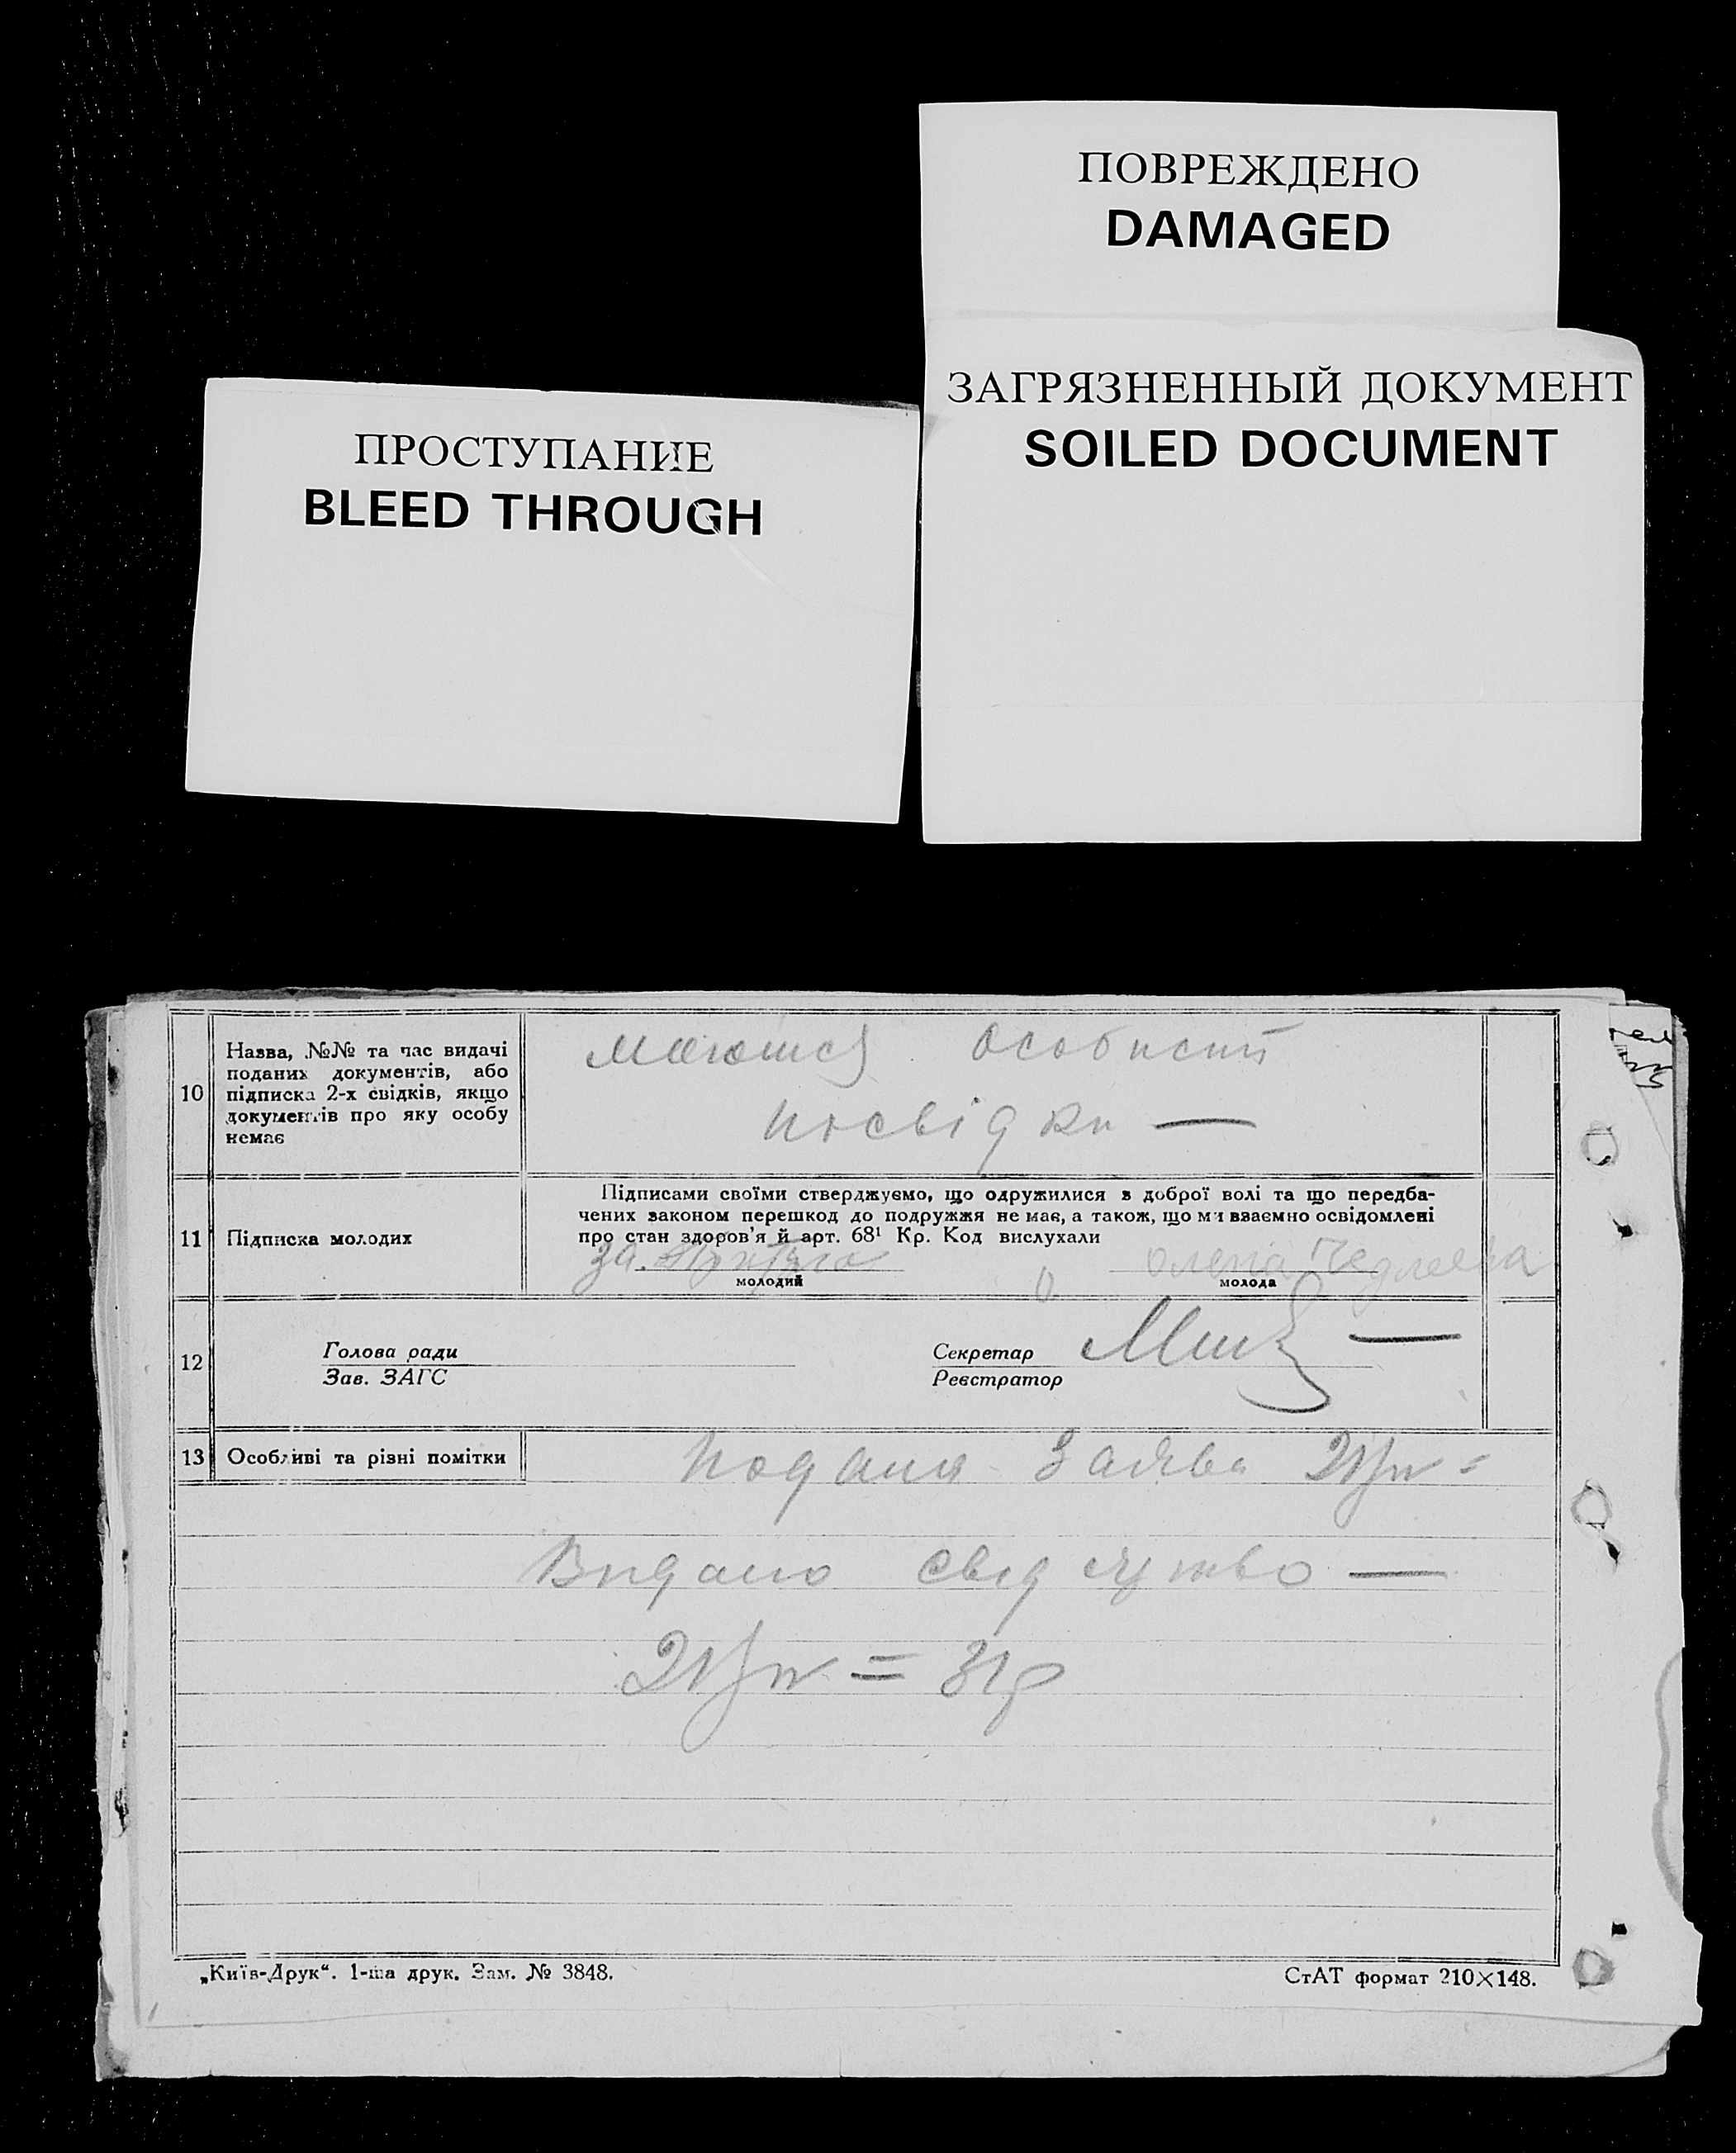 ПОВРЕЖДЕНО
DAMAGED
ЗАГРЯЗНЕННЫЙ ДОКУМЕНТ
SOILED DOCUMENT
ПРОСТУПАНИЕ
BLEED THROUGH
10
Назва, №№ та час видачі
поданих документів, або
підписка 2-х свідків, якщо
документів про яку особу
немає
маются особисті
посвідки —
11
Підписка молодих
Підписами своїми стверджуємо, що одружилися з доброї волі та що передба-
чених законом перешкод до подружжя не має, а також, що ми взаємно освідомлені
про стан здоров'я й арт. 68¹ Кр. Код вислухали
за
Олена
молодий
молода
12
Голова ради
Зав. ЗАГС
Секретар
Реєстратор
13
Особливі та різні помітки
Подана заява
Видано свідоцтво —
„Київ-Друк“. 1-ша друк. Зам. № 3848.
СтАТ формат 210×148.